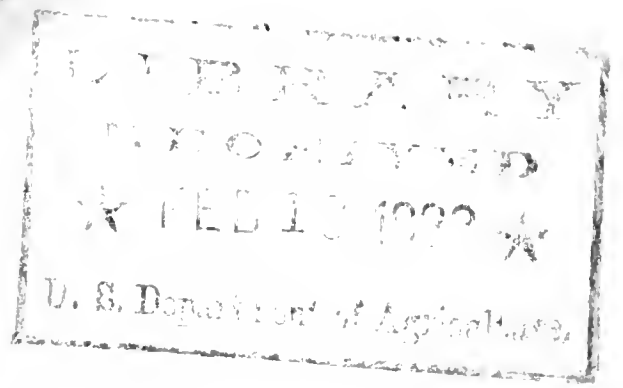 LIBRARY
RECEIVED
★ FEB 1 ★
U. S. Department of Agriculture,